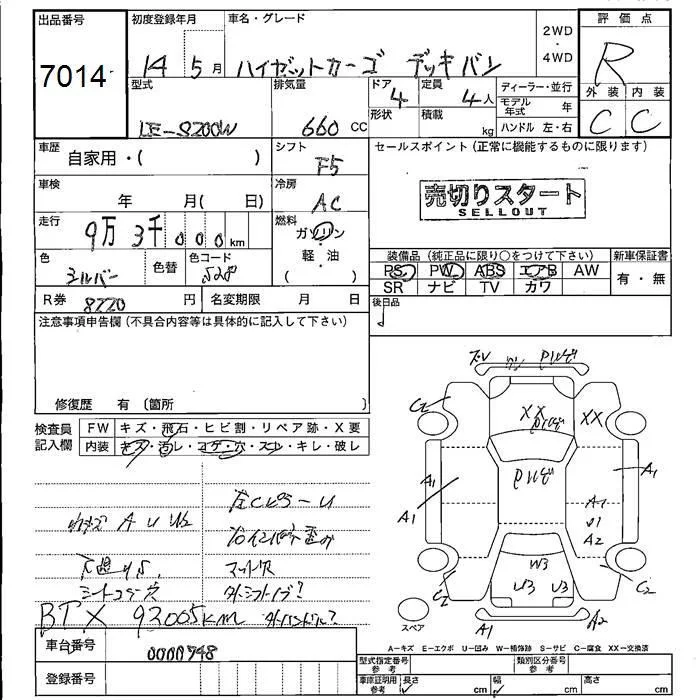 出品番号 初度登録年月 車名・グレード 2WD・4WD 評価点
7014 14 5月 ハイゼットカーゴ デッキバン R
型式 排気量 ドア 4 定員 4人 ディーラー・並行 外装 内装
LE-S200W 660 CC 形状 積載 kg モデル年式 年 C C
ハンドル 左・右
車歴 自家用・( ) シフト F5 セールスポイント(正常に機能するものに限ります)
車検 年 月( 日) 冷房 AC 売切りスタート
SELLOUT
走行 9万3千000km 燃料 ガソリン
軽・油
( )
色 シルバー 色替 色コード S28 装備品(純正品に限り○をつけて下さい) 新車保証書
PS PW ABS エアB AW 有・無
SR ナビ TV カワ
R券 8220 円 名変期限 月 日 後日品
注意事項申告欄(不具合内容等は具体的に記入して下さい)
修復歴 有〔箇所 〕
検査員記入欄 FW キズ・飛石・ヒビ割・リペア跡・X要
内装 キズ・汚レ・コゲ・穴・スレ・キレ・破レ
A U U2
マット穴
シートコゲ穴
BTX 93005km
車台番号 0000748
登録番号
XX XX
A1 A1 A1
A1 U1 A2
W3
U3 U3
C2 C2
A1 A2
スペア
A-キズ E-エクボ U-凹み W-補修跡 S-サビ C-腐食 XX-交換済
型式指定番号 参考 類別区分番号 参考
車庫証明用 参考 長さ cm 幅 cm 高さ cm